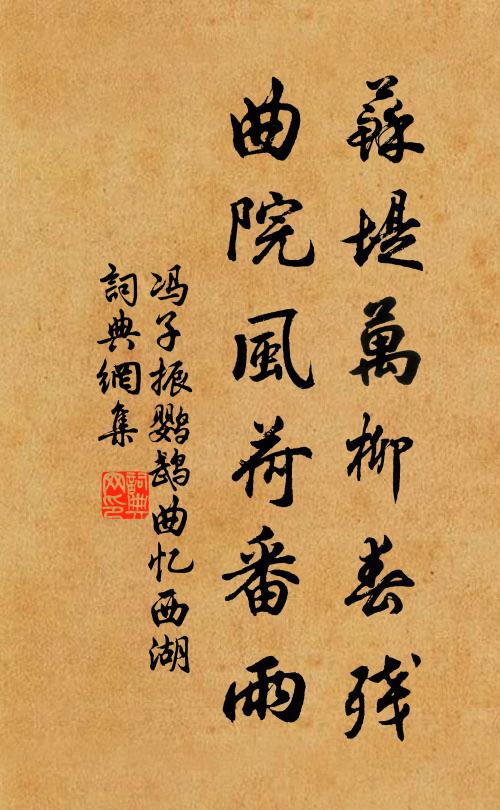 蘇堤萬柳春残
曲院風荷番雨
冯子振鹦鹉曲忆西湖
詞典網集
詞典網印